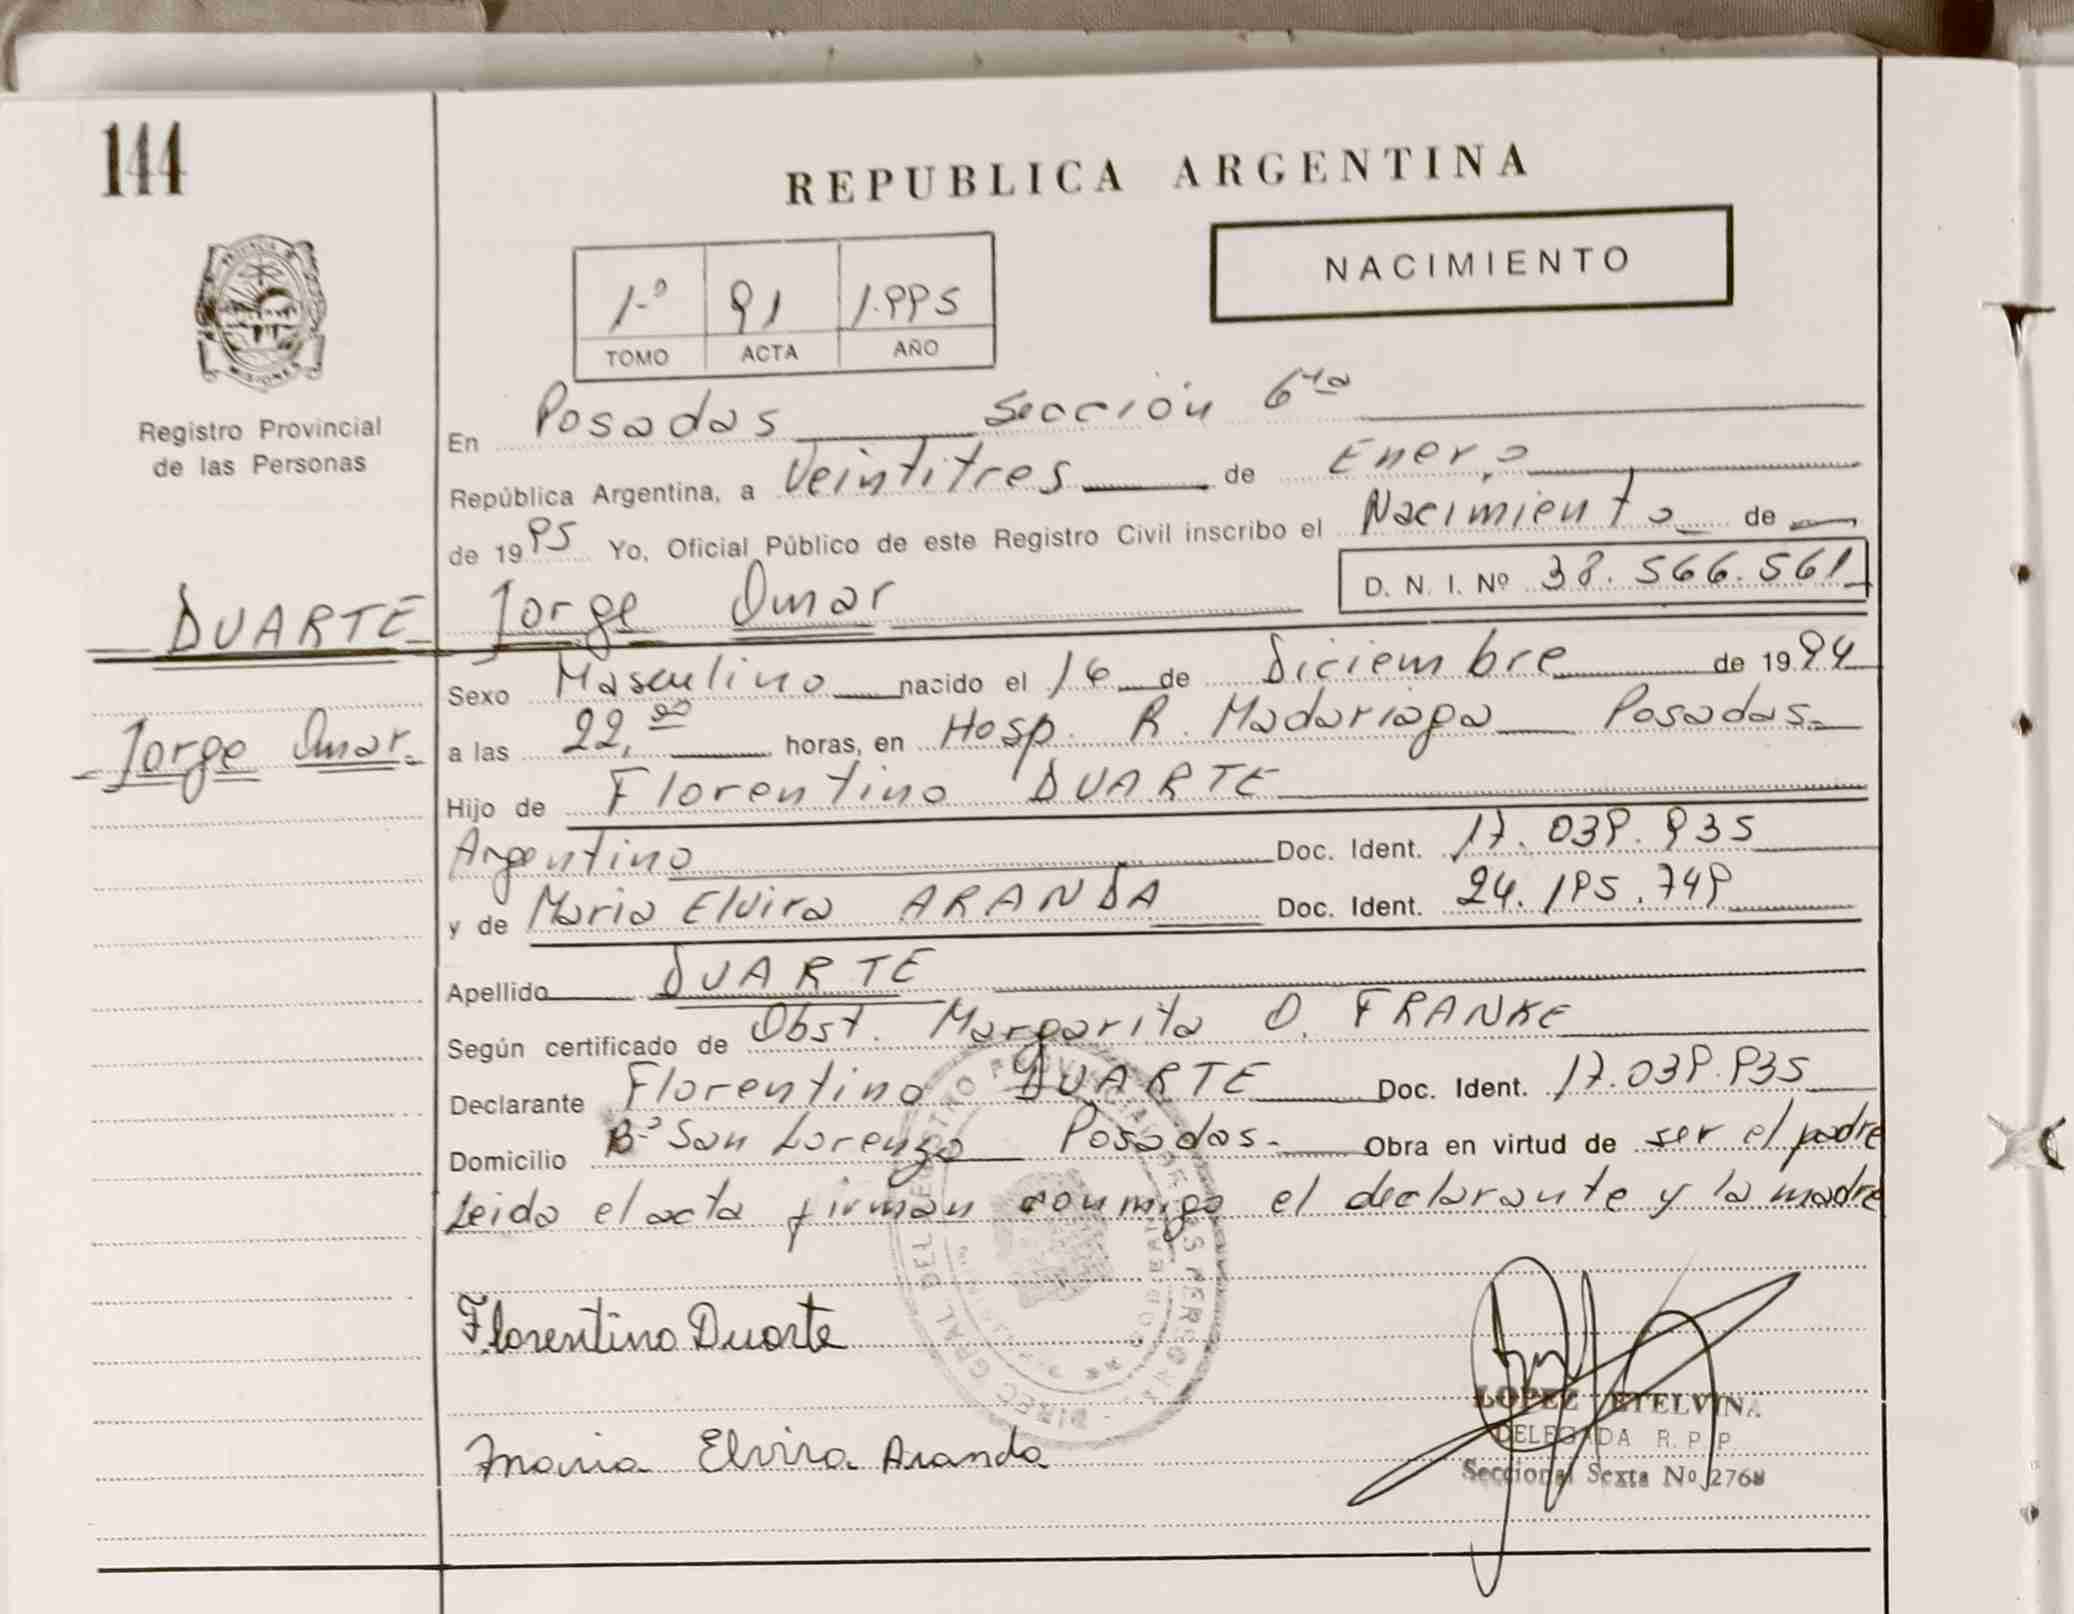 144
REPUBLICA ARGENTINA
NACIMIENTO
1-º 91 1.995
TOMO ACTA AÑO
PROVINCIA DE
MISIONES
Registro Provincial
de las Personas
En Posadas Sección 6ta
República Argentina, a Veintitres de Enero
de 1995 Yo, Oficial Público de este Registro Civil inscribo el Nacimiento de
D. N. I. Nº 38.566.561
DUARTE Jorge Omar
Sexo Masculino nacido el 16 de Diciembre de 1994
Jorge Omar.
a las 22,00 horas, en Hosp. R. Madariaga Posadas.
Hijo de Florentino DUARTE
Argentino Doc. Ident. 17.039.935
y de Maria Elvira ARANDA Doc. Ident. 24.195.749
Apellido DUARTE
Según certificado de Obst. Margarita O. FRANKE
Declarante Florentino DUARTE Doc. Ident. 17.039.935
Domicilio Bº San Lorenzo Posadas. Obra en virtud de ser el padre
Leida el acta firman conmigo el declarante y la madre
DIREC GRAL DEL REGISTRO PROVINCIAL DE LAS PERSONAS
Florentino Duarte
Maria Elvira Aranda
LOPEZ ETELVINA
DELEGADA R. P. P.
Seccional Sexta Nº 2768